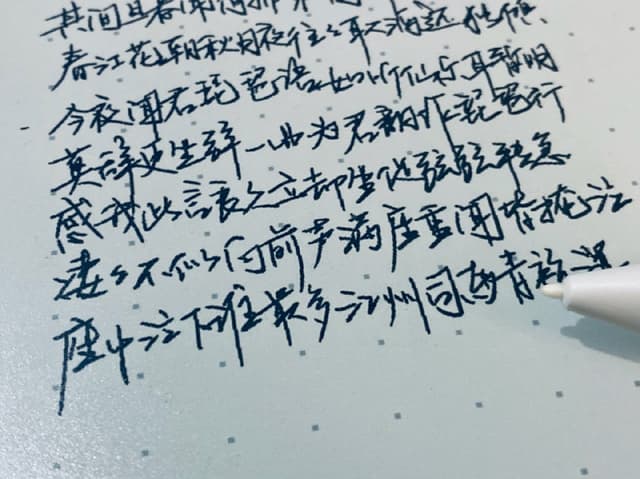 其间旦暮闻何物
春江花朝秋月夜往々取酒还独倾
今夜闻君琵琶语如听仙乐耳暂明
莫辞更坐弹一曲为君翻作琵琶行
感我此言良久立却坐促弦弦转急
凄々不似向前声满座重闻皆掩泣
座中泣下谁最多江州司马青衫湿